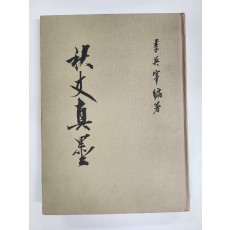 李英宰編著
秋史真墨